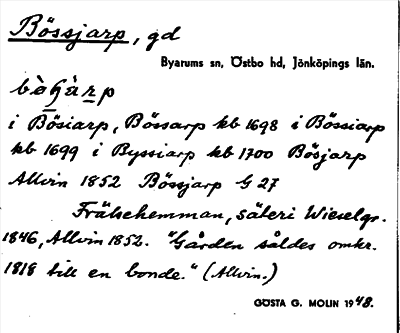 Bössjarp, gd
Byarums sn, Östbo hd, Jönköpings län.
i Bösiarp, Bössarp kb 1698 i Bössiarp
kb 1699 i Byssiarp kb 1700 Bösjarp
Allvin 1852 Bössjarp G 27
Frälsehemman, säteri Wieselgr.
1846, Allvin 1852. "Gården såldes omkr.
1818 till en bonde." (Allvin.)
GÖSTA G. MOLIN 1948.